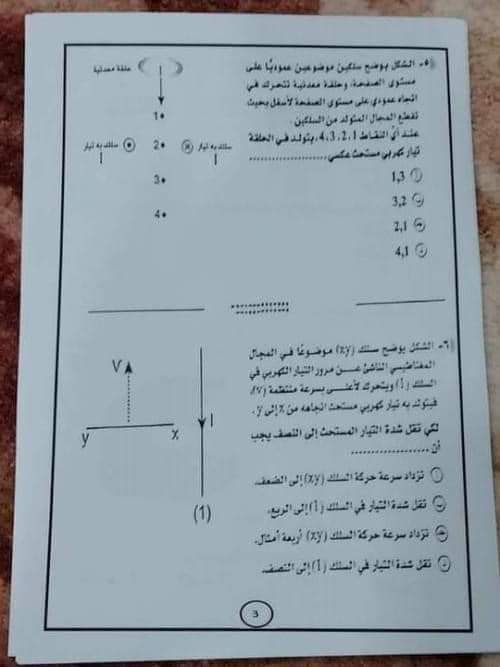 ٥- الشكل يوضح سلكين موضوعين عموديًا على
مستوى الصفحة، وحلقة معدنية تتحرك في
اتجاه عمودي على مستوى الصفحة لأسفل بحيث
تقطع المجال المتولد من السلكين.
عند أيّ النقاط 1، 2، 3، 4، يتولد في الحلقة
تيار كهربي مستحث عكسي ..............
أ 1,3
ب 3,2
ج 2,1
د 4,1
حلقة معدنية
1
2
3
4
سلك به تيار
I
سلك به تيار
I
٦- الشكل يوضح سلك (xy) موضوعًا في المجال
المغناطيسي الناشئ عـن مرور التيار الكهربي في
السلك (1) ويتحرك لأعلى بسرعة منتظمة (v)،
فيتولد به تيار كهربي مستحث اتجاهه من x إلى y.
لكي تقل شدة التيار المستحث إلى النصف يجب
أن ..............
أ تزداد سرعة حركة السلك (xy) إلى الضعف.
ب تقل شدة التيار في السلك (1) إلى الربع.
ج تزداد سرعة حركة السلك (xy) أربعة أمثال.
د تقل شدة التيار في السلك (1) إلى النصف.
V
y
x
I
(1)
3